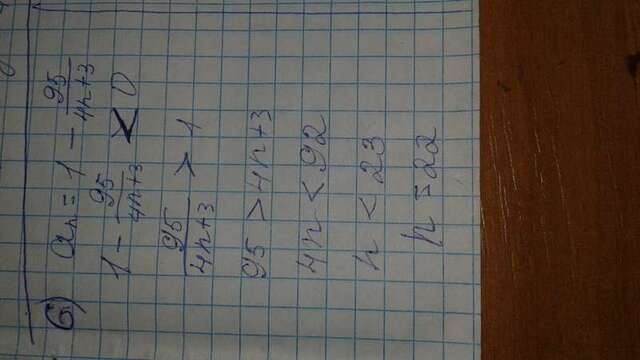 б) aₙ = 1 - 95/(4n+3)
1 - 95/(4n+3) < 0
95/(4n+3) > 1
95 > 4n+3
4n < 92
n < 23
n = 22